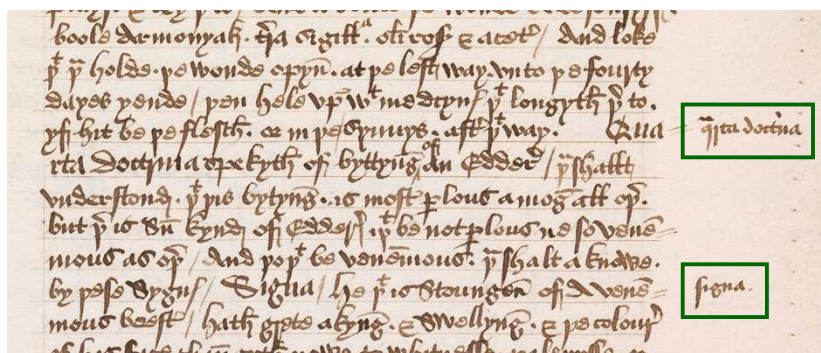 boole Armonyak . tra sigill . oli ros & acet / And loke
þt þu holde . þe wonde opyn . at þe lest way . vn to þe fourty
dayes yende / þen hele vp wt medcyn þt longyth þer to .
yf hit be þe flessh . or in þe Synuys . aftr þt way . Qua =
rta Doctrina spekyth of byttyng of an Edder / þu shallt
vnderstond . þt þis bytyng . is most perlous amōg all oþer .
but þer is Sū kynd of Edders þt be not perlous ne so venē =
mous as oþer / And þo þt be venēmous . þu shalt a knowe .
by þese Sygn // Signa / he þt is Stoungen of A venē =
mous beest / hath grete akyng . & Swellyng . & þe colour
qarta doctrina
signa .